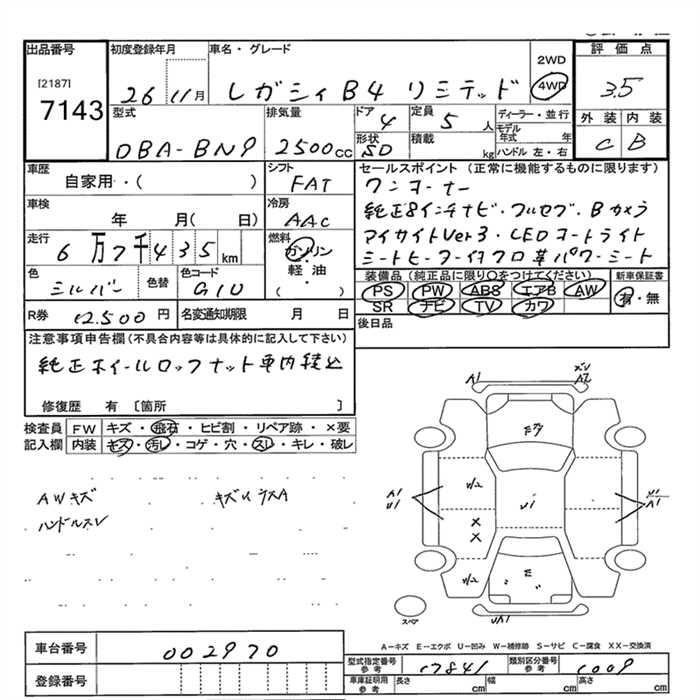 出品番号 初度登録年月 車名・グレード 2WD 評価点
[2187] 7143
26 11月 レガシィB4 リミテッド 4WD 3.5
型式 排気量 ドア 4 定員 5 人 ディーラー・並行 外装 内装
DBA-BN9 2500cc 形状 SD 積載 kg モデル年式 年 ハンドル 左・右 C B
車歴 自家用・・( ) シフト FAT セールスポイント (正常に機能するものに限ります)
ワンオーナー
車検 年 月( 日) 冷房 AAC 純正8インチナビ・フルセグ・Bカメラ
走行 6万7千435km 燃料 ガソリン・軽油 ( ・ ) アイサイトVer3・LEDヘッドライト
シートヒーター付クロ革パワーシート
色 シルバー 色替 色コード G1U 装備品 (純正品に限り○をつけてください) 新車保証書
PS PW ABS エアB AW 有・無
SR ナビ TV カワ
R券 12500円 名変通知期限 月 日 後日品
注意事項申告欄(不具合内容等は具体的に記入して下さい)
純正ホイールロックナット車内積込
修復歴 有 〔箇所 〕
検査員記入欄 FW キズ・飛石・ヒビ割・リペア跡・×要
内装 キズ・汚レ・コゲ・穴・スレ・キレ・破レ
AWキズ
ハンドルスレ
キズイラスA
A1 A2
E7
W2 U1
A1 U1 U1 A1
X
X
W2 E
UA1
スペア
A-キズ E-エクボ U-凹み W-補修跡 S-サビ C-腐食 XX-交換済
車台番号 002970
登録番号
型式指定番号 参考 17841 類別区分番号 参考 1009
車庫証明用 参考 長さ cm 幅 cm 高さ cm